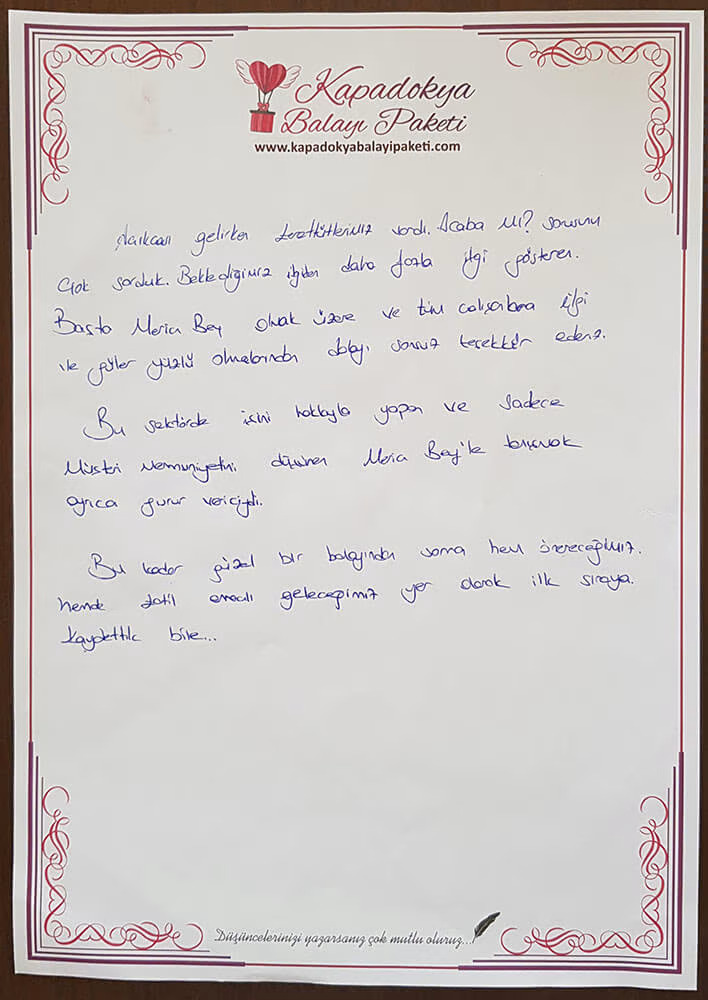 Kapadokya
Balayı Paketi
www.kapadokyabalayipaketi.com
Açıkcası gelirken tereddütlerimiz vardı. Acaba Mı? sorusunu
Çok sorduk. Beklediğimiz ilgiden daha fazla ilgi gösteren.
Başta Meriç Bey olmak üzere ve tüm çalışanlara ilgi
ve güler yüzlü olmalarından dolayı sonsuz teşekkür ederiz.
Bu sektörde işini hakkıyla yapan ve sadece
Müşteri Memnuniyetini düşünen Meriç Bey'le tanışmak
ayrıca gurur vericiydi.
Bu kadar güzel bir balayından sonra hem önereceğimiz.
hemde tatil amaçlı geleceğimiz yer olarak ilk sıraya.
Kaydettik bile...
Düşüncelerinizi yazarsanız çok mutlu oluruz...